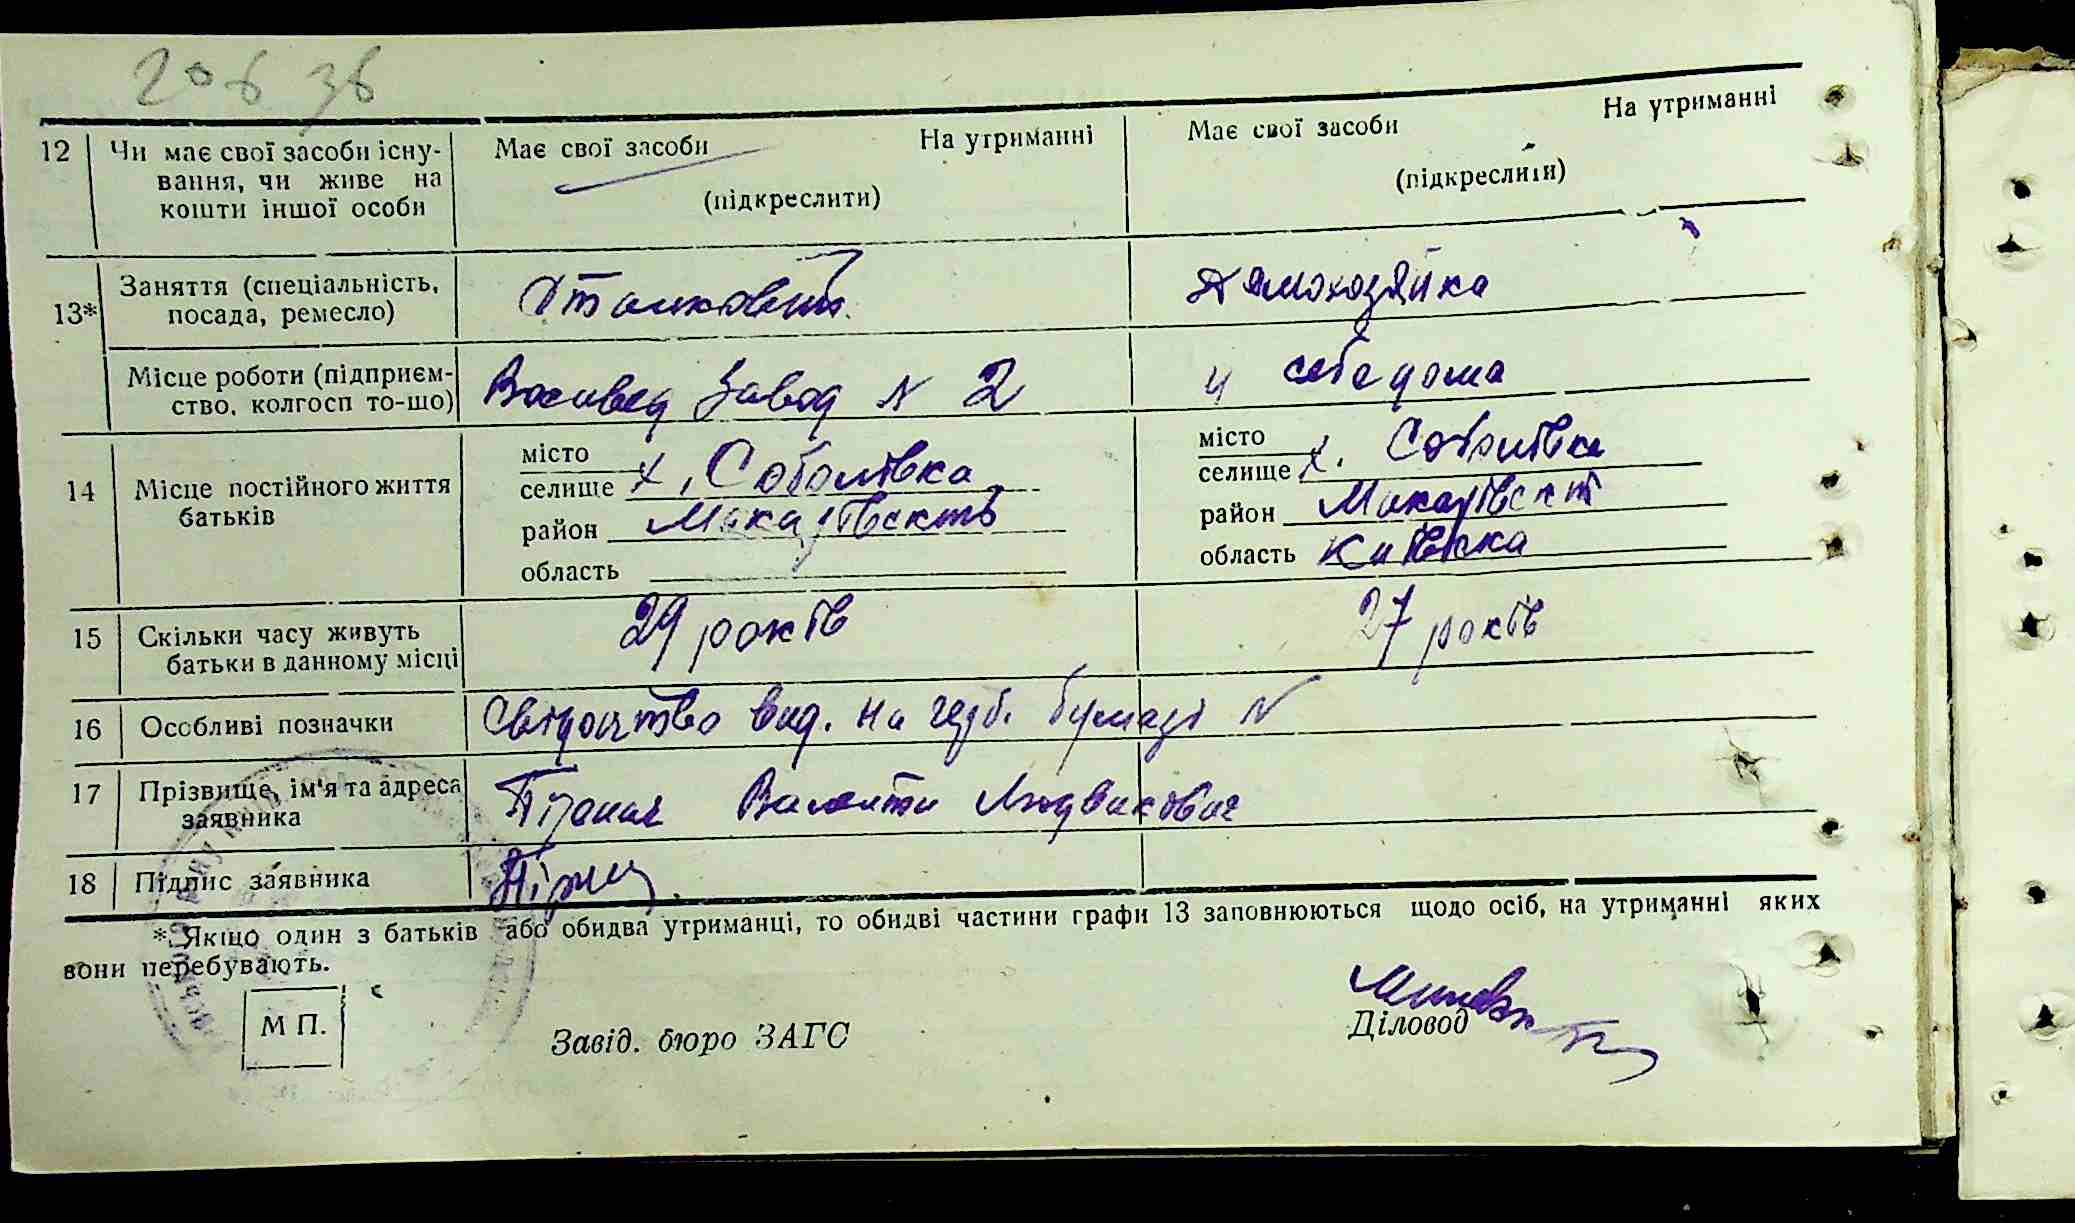 12 Чи має свої засоби існу- Має свої засоби На утриманні Має свої засоби На утриманні
вання, чи живе на
кошти іншої особи (підкреслити) (підкреслити)
13* Заняття (спеціальність, домохозяйка
посада, ремесло)
Місце роботи (підприєм- завод № 2 у себе дома
ство, колгосп то-що)
14 Місце постійного життя місто місто
батьків селище х. Соболівка селище х. Соболівка
район Макарівськ район Макарівськ
область область Київська
15 Скільки часу живуть 29 років 27 років
батьки в данному місці
16 Особливі позначки Свідоцтво вид. на герб. бумазі №
17 Прізвище, ім'я та адреса Людвикович
заявника
18 Підпис заявника
* Якщо один з батьків або обидва утриманці, то обидві частини графи 13 заповнюються щодо осіб, на утриманні яких
вони перебувають.
М П.
Завід. бюро ЗАГС Діловод